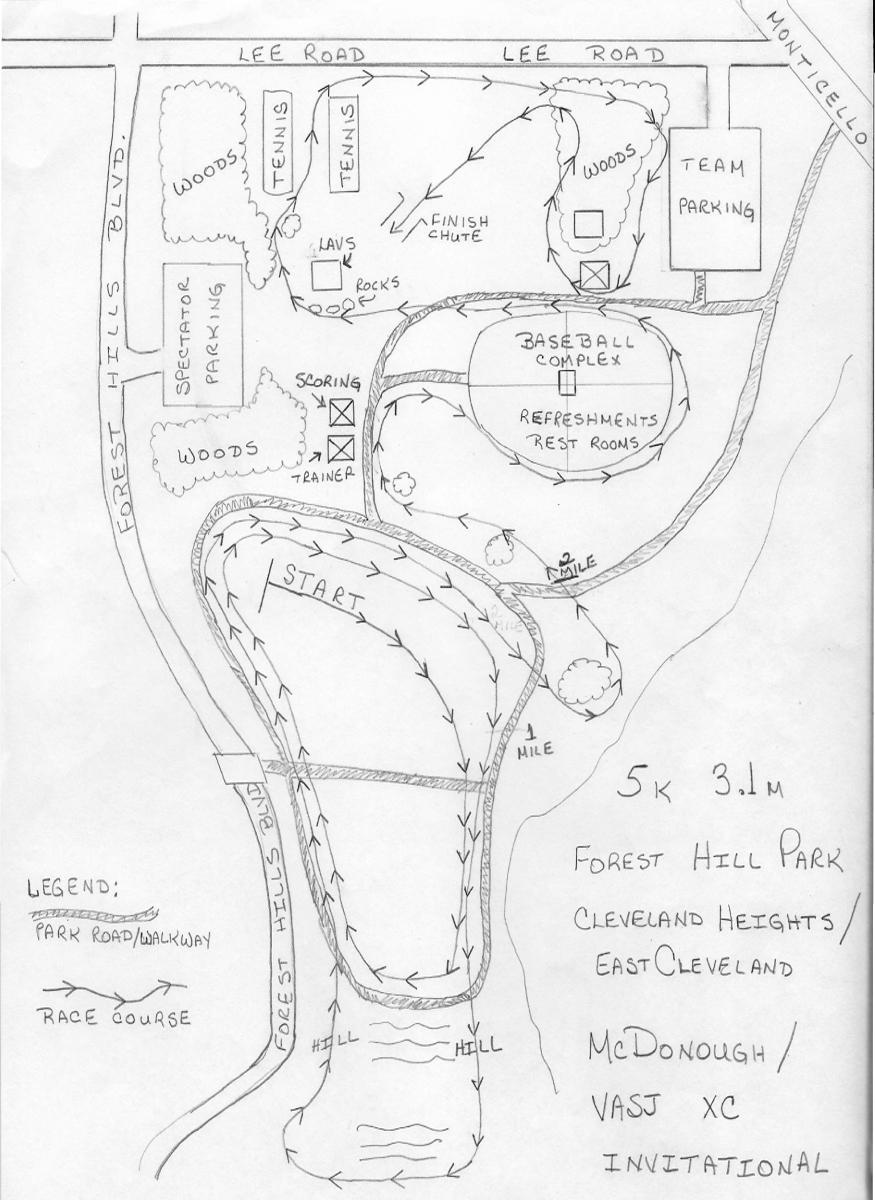 LEE ROAD
LEE ROAD
MONTICELLO
FOREST HILLS BLVD.
WOODS
TENNIS
TENNIS
WOODS
TEAM
PARKING
FINISH
CHUTE
LAVS
ROCKS
SPECTATOR
PARKING
BASEBALL
COMPLEX
REFRESHMENTS
REST ROOMS
SCORING
WOODS
TRAINER
2
MILE
START
2
MILE
1
MILE
5K 3.1M
FOREST HILL PARK
CLEVELAND HEIGHTS/
EAST CLEVELAND
FOREST HILLS BLVD
LEGEND:
PARK ROAD/WALKWAY
RACE COURSE
HILL
HILL
MCDONOUGH/
VASJ XC
INVITATIONAL